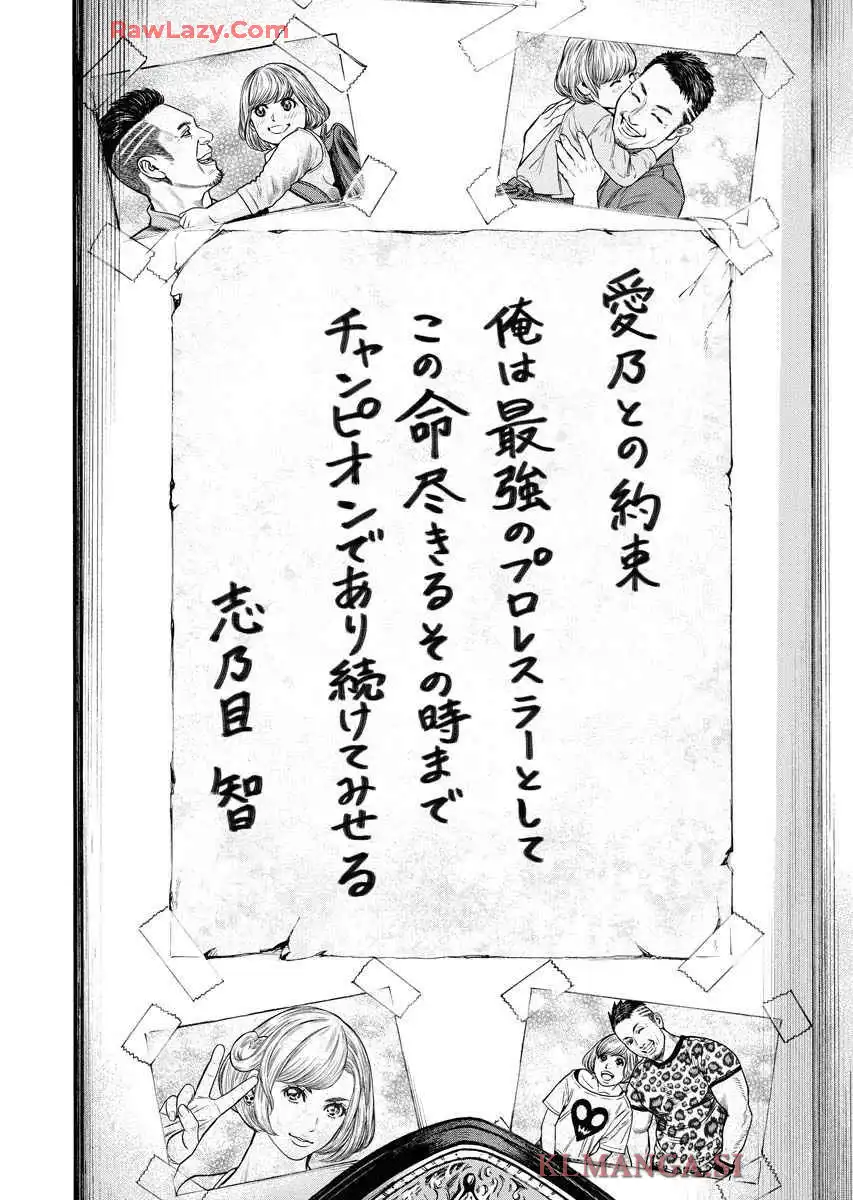 RawLazy.Com
愛乃との約束
俺は最強のプロレスラーとして
この命尽きるその時まで
チャンピオンであり続けてみせる
志乃目 智
KLMANGA.SI